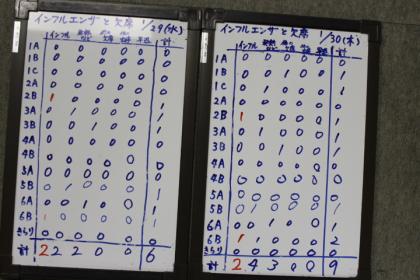 インフルエンザと欠席 1/29(水)
インフル 計
1A 0 0 0 0 0 0
1B 0 0 0 0 0 0
1C 0 0 0 0 0 0
2A 0 0 0 0 0 0
2B 1 0 0 0 0 1
3A 0 1 0 0 0 1
3B 0 0 1 0 0 1
4A 0 0 0 0 0 0
4B 0 0 0 0 0 0
5A 0 0 0 0 0 0
5B 0 1 0 0 0 1
6A 0 0 1 0 0 1
6B 1 0 0 0 0 1
きらり 0 0 0 0 0 0
計 2 2 2 0 0 6
インフルエンザと欠席 1/30(木)
インフル 計
1A 0 0 0 0 0 0
1B 0 0 1 0 0 1
1C 0 1 0 0 0 1
2A 0 0 0 0 0 0
2B 1 0 0 0 0 1
3A 0 1 0 0 0 1
3B 0 0 1 0 0 1
4A 0 0 0 0 0 0
4B 0 0 0 0 0 0
5A 0 0 0 0 0 0
5B 0 1 0 0 0 1
6A 0 0 1 0 0 1
6B 1 1 0 0 0 2
きらり 0 0 0 0 0 0
計 2 4 3 0 0 9